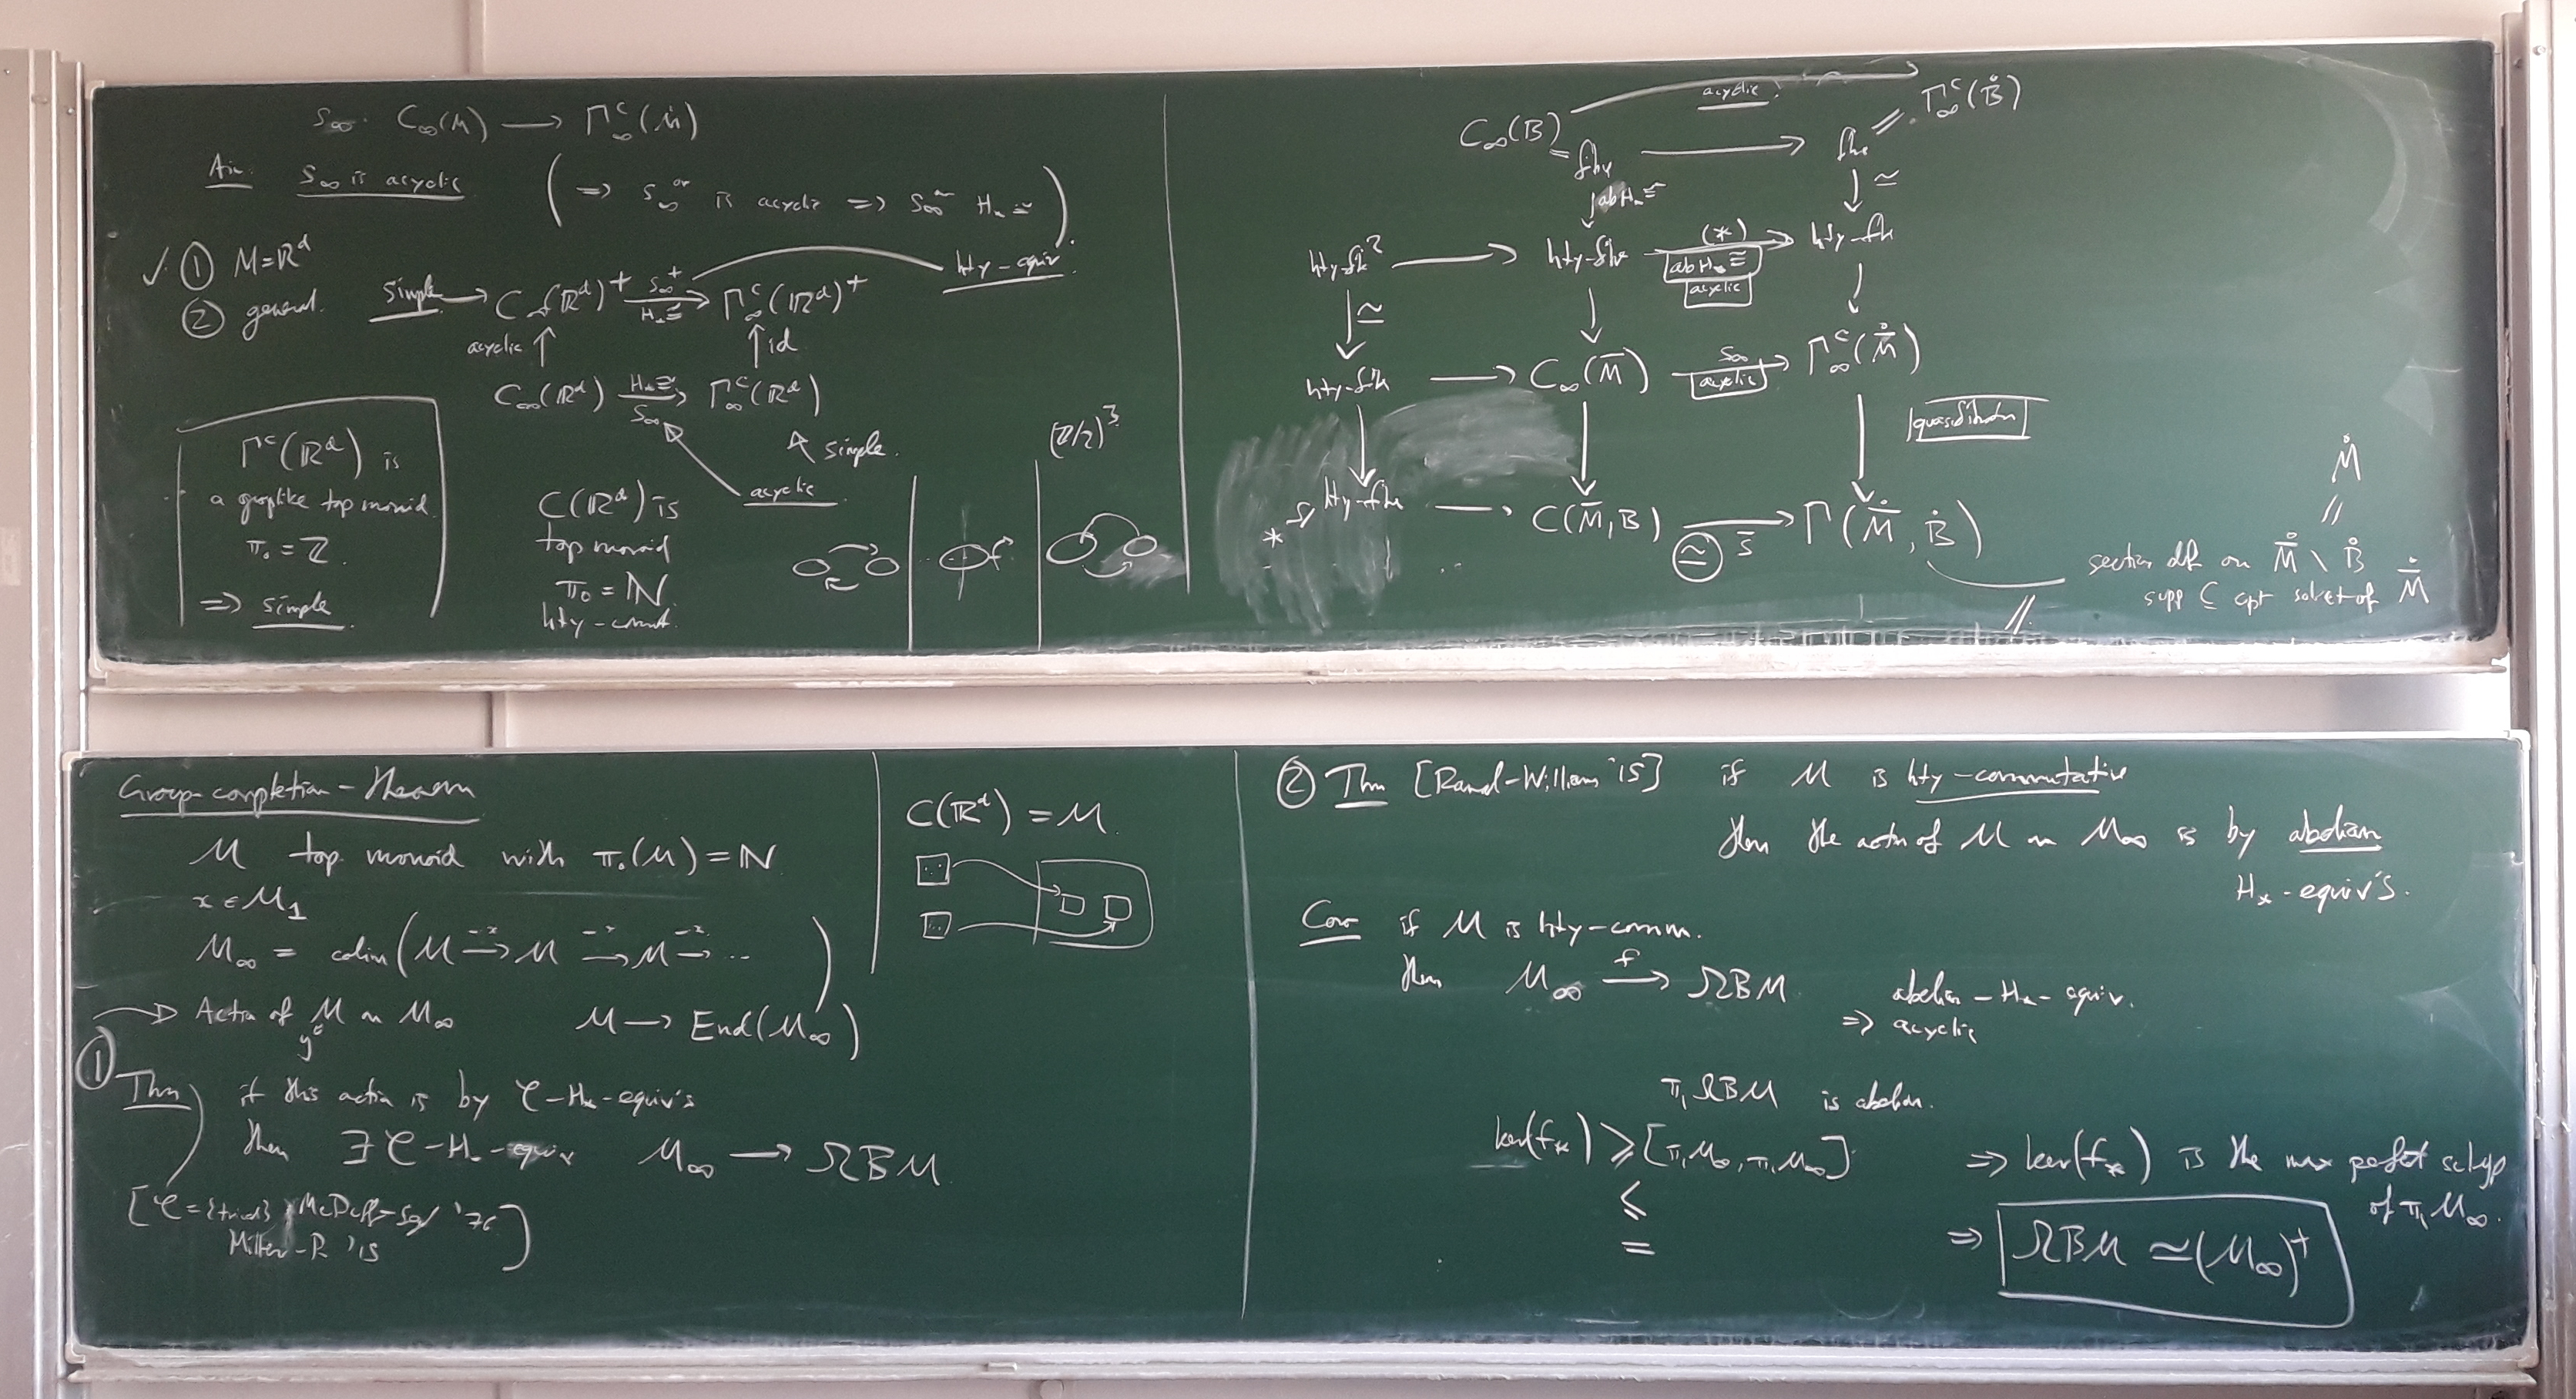 S∞ : C∞(M) → Γ∞ᶜ(Ṁ)
Aim: S∞ is acyclic ( ⇒ S∞ is acyclic ⇒ S∞ H* ≅ )
✓ ① M = ℝᵈ
② general.
simple → C∞(ℝᵈ)⁺ —S∞⁺, H*≅→ Γ∞ᶜ(ℝᵈ)⁺ hty-equiv.
acyclic ↑ ↑ id
C∞(ℝᵈ) —H*≅, S∞→ Γ∞ᶜ(ℝᵈ)
simple.
acyclic
Γᶜ(ℝᵈ) is
a grouplike top monoid.
π₀ = ℤ.
⇒ simple.
C(ℝᵈ) is
top monoid
π₀ = ℕ.
hty-comut.
(ℤ/2)³
acyclic
C∞(B) = fibre → fibre = Γ∞ᶜ(Ḃ)
↓ abH*≅ ↓ ≃
hty-fib → hty-fibre —(*)→ hty-fib
abH*≅
acyclic
↓ ≃ ↓ ↓
hty-fib → C∞(M̄) —S∞→ Γ∞ᶜ(M̄)
acyclic
↓ ↓ ↓ quasifibration
* hty-fibre → C(M̄, B) —≃ s̄→ Γ(M̄, Ḃ)
Ṁ
=
section def on M̄ \ B̊
supp ⊆ cpt subset of M̄
Group-completion-theorem
M top. monoid with π₀(M) = ℕ
x ∈ M₁
M∞ = colim( M —-·x→ M —-·x→ M —-·x→ ... )
→ Action of M on M∞ M → End(M∞)
y
① Thm if this action is by 𝒞-H*-equiv's
then ∃ 𝒞-H*-equiv M∞ → ΩBM
[𝒞 = {trivial} McDuff-Seg '76
Miller-P. '15]
C(ℝᵈ) = M.
② Thm [Randal-Williams '15] if M is hty-commutative
then the action of M on M∞ is by abelian
H*-equiv's.
Cor if M is hty-comm.
then M∞ —f→ ΩBM abelian-H*-equiv.
⇒ acyclic
π₁ΩBM is abelian.
ker(f*) ≥ [π₁M∞, π₁M∞] ⇒ ker(f*) is the max perfect subgp
≤ of π₁M∞.
= ⇒ ΩBM ≃ (M∞)⁺